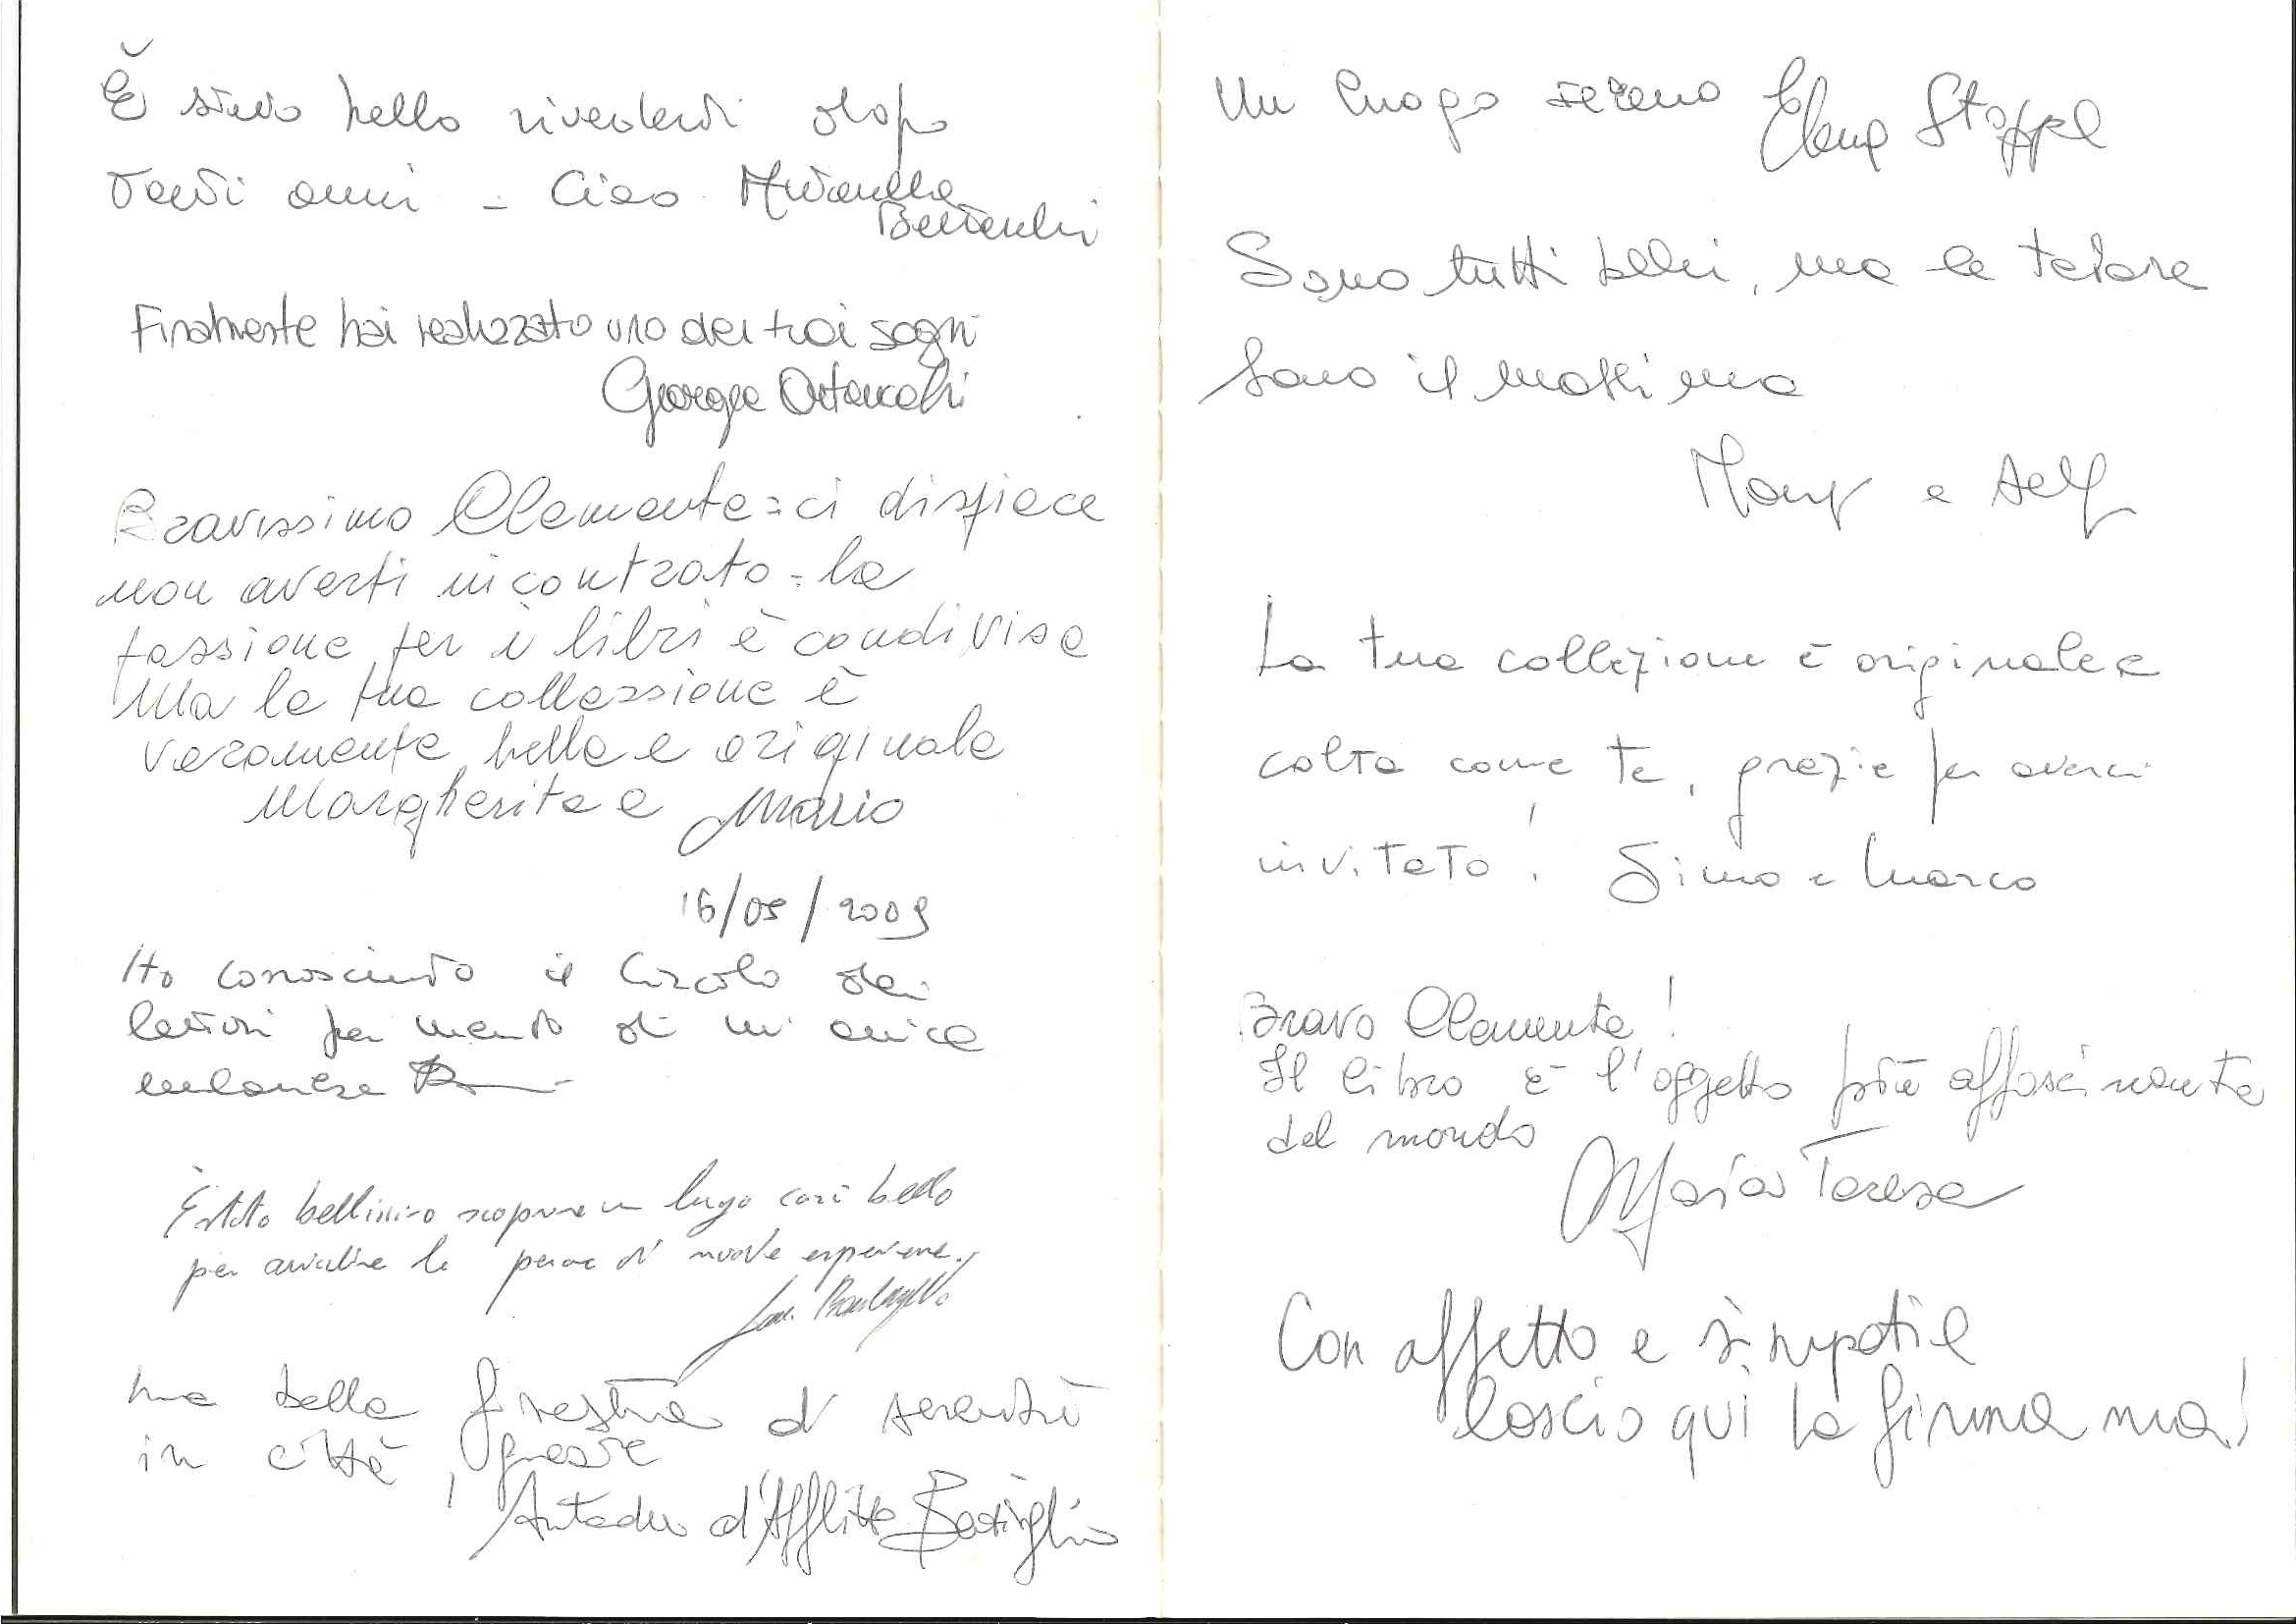 È stato bello rivederti dopo
tanti anni - Ciao Mirandla
Finalmente hai realizzato uno dei tuoi sogni
Bravissimo Clemente = ci dispiace
non averti incontrato - la
passione per i libri è condivisa
Ma la tua collezione è
veramente bella e originale
Margherita e Mario
16/05/2009
Ho conosciuto il Circolo dei
lettori per merito di un' amica
milanese
È stato bellissimo scoprire un luogo così bello
per avvicinare le persone di nuove esperienze.
una bella finestra di serenità
in città, grazie
d'Afflitto
Un luogo sereno Elena
Sono tutti belli, ma le tetare
sono il massimo
e
La tua collezione è originale e
colta come te, grazie per averci
invitato! Simo e Marco
Bravo Clemente!
Il libro è l'oggetto più affascinante
del mondo
Maria Teresa
Con affetto e simpatia
lascio qui la firma mia!